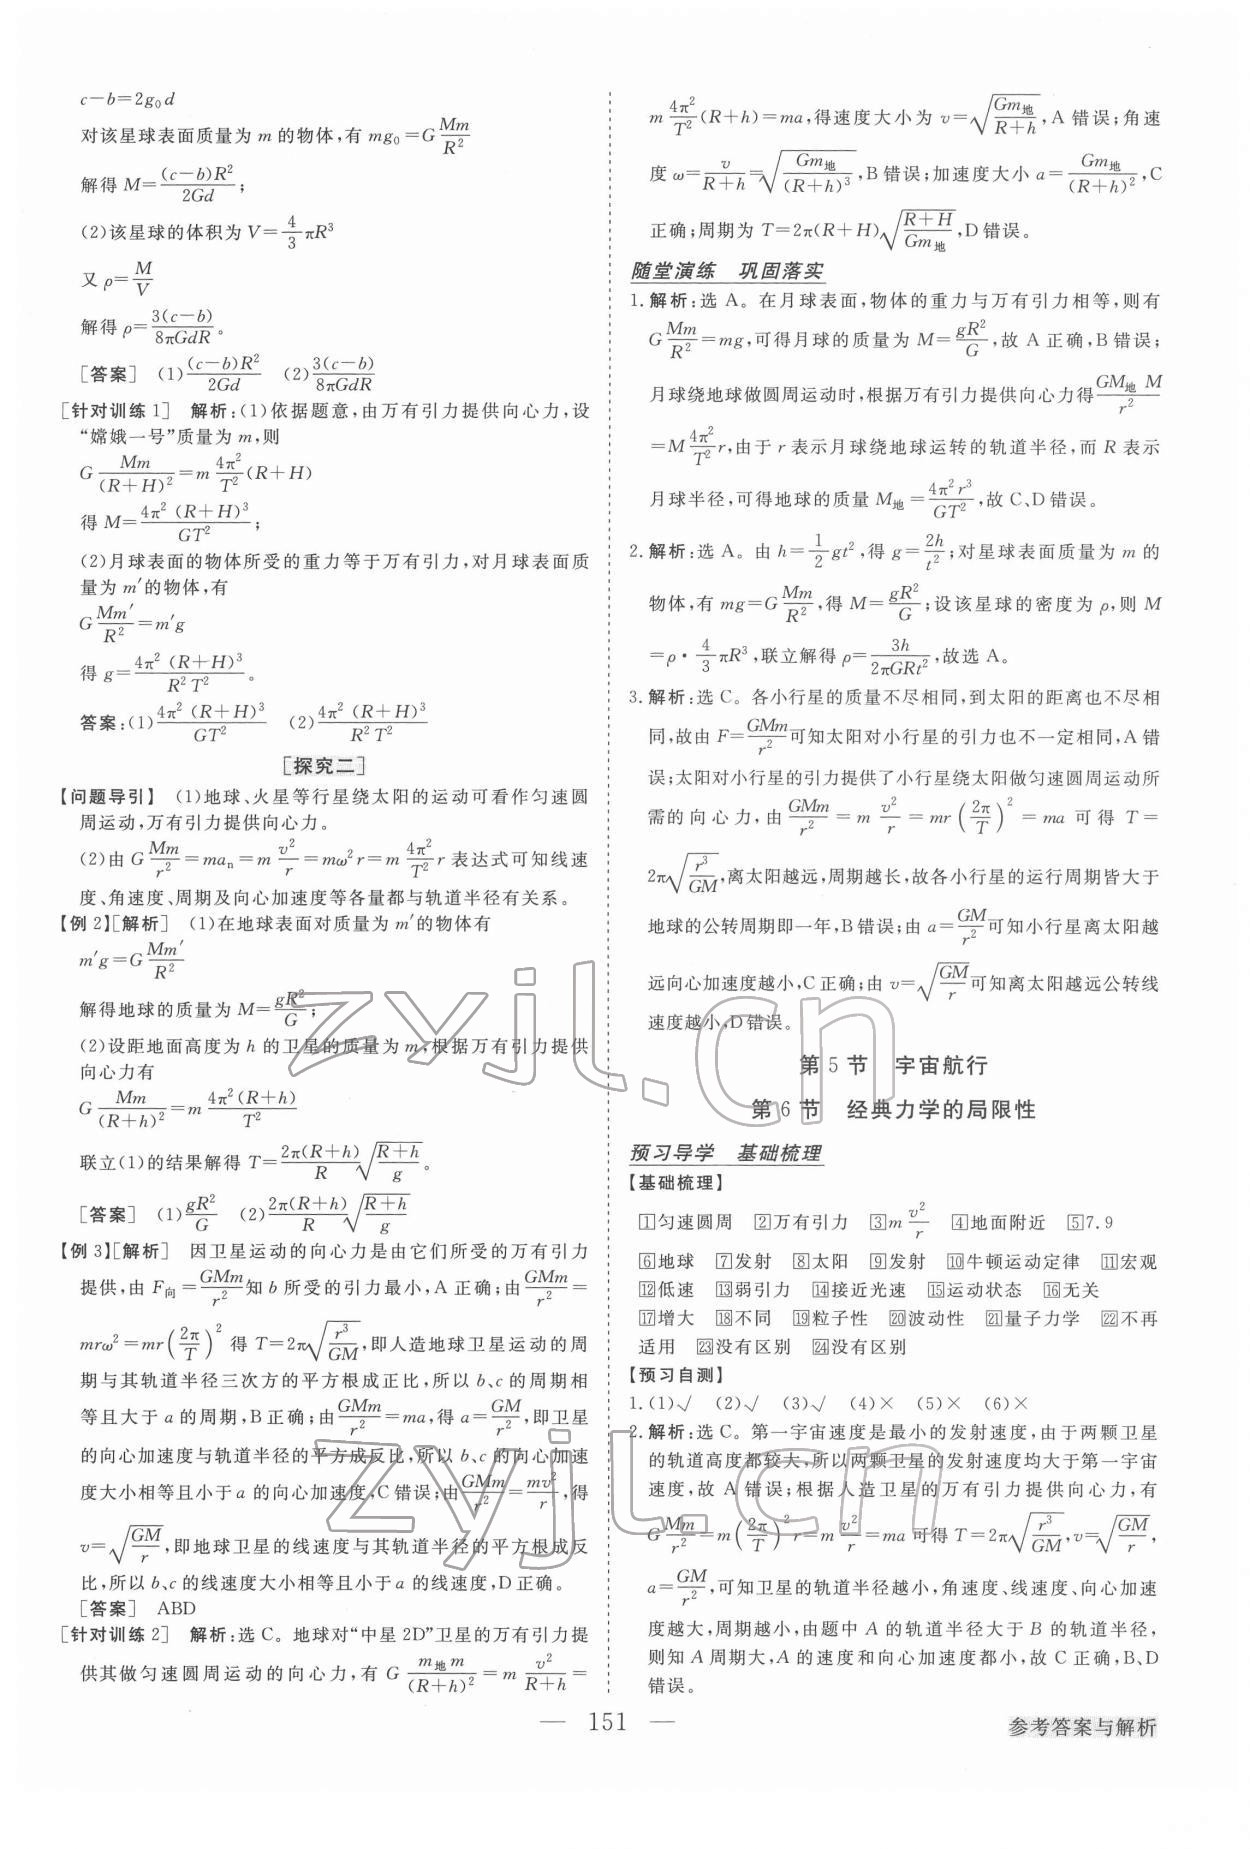 c－b＝2g₀d
对该星球表面质量为 m 的物体,有 mg₀＝G\frac{Mm}{R²}
解得 M＝\frac{(c－b)R²}{2Gd};
(2)该星球的体积为 V＝\frac{4}{3}πR³
又 ρ＝\frac{M}{V}
解得 ρ＝\frac{3(c－b)}{8πGdR}。
[答案] (1)\frac{(c－b)R²}{2Gd} (2)\frac{3(c－b)}{8πGdR}
[针对训练 1] 解析:(1)依据题意,由万有引力提供向心力,设
“嫦娥一号”质量为 m,则
G\frac{Mm}{(R＋H)²}＝m\frac{4π²}{T²}(R＋H)
得 M＝\frac{4π²(R＋H)³}{GT²};
(2)月球表面的物体所受的重力等于万有引力,对月球表面质
量为 m′的物体,有
G\frac{Mm′}{R²}＝m′g
得 g＝\frac{4π²(R＋H)³}{R²T²}。
答案:(1)\frac{4π²(R＋H)³}{GT²} (2)\frac{4π²(R＋H)³}{R²T²}
[探究二]
【问题导引】 (1)地球、火星等行星绕太阳的运动可看作匀速圆
周运动,万有引力提供向心力。
(2)由 G\frac{Mm}{r²}＝maₙ＝m\frac{v²}{r}＝mω²r＝m\frac{4π²}{T²}r 表达式可知线速
度、角速度、周期及向心加速度等各量都与轨道半径有关系。
【例 2】[解析] (1)在地球表面对质量为 m′的物体有
m′g＝G\frac{Mm′}{R²}
解得地球的质量为 M＝\frac{gR²}{G};
(2)设距地面高度为 h 的卫星的质量为 m,根据万有引力提供
向心力有
G\frac{Mm}{(R＋h)²}＝m\frac{4π²(R＋h)}{T²}
联立(1)的结果解得 T＝\frac{2π(R＋h)}{R}\sqrt{\frac{R＋h}{g}}。
[答案] (1)\frac{gR²}{G} (2)\frac{2π(R＋h)}{R}\sqrt{\frac{R＋h}{g}}
【例 3】[解析] 因卫星运动的向心力是由它们所受的万有引力
提供,由 F向＝\frac{GMm}{r²}知 b 所受的引力最小,A 正确;由\frac{GMm}{r²}＝
mrω²＝mr(\frac{2π}{T})² 得 T＝2π\sqrt{\frac{r³}{GM}},即人造地球卫星运动的周
期与其轨道半径三次方的平方根成正比,所以 b、c 的周期相
等且大于 a 的周期,B 正确;由\frac{GMm}{r²}＝ma,得 a＝\frac{GM}{r²},即卫星
的向心加速度与轨道半径的平方成反比,所以 b、c 的向心加速
度大小相等且小于 a 的向心加速度,C 错误;由\frac{GMm}{r²}＝\frac{mv²}{r},得
v＝\sqrt{\frac{GM}{r}},即地球卫星的线速度与其轨道半径的平方根成反
比,所以 b、c 的线速度大小相等且小于 a 的线速度,D 正确。
[答案] ABD
[针对训练 2] 解析:选 C。地球对“中星 2D”卫星的万有引力提
供其做匀速圆周运动的向心力,有 G\frac{m地m}{(R＋h)²}＝m\frac{v²}{R＋h}＝
m\frac{4π²}{T²}(R＋h)＝ma,得速度大小为 v＝\sqrt{\frac{Gm地}{R＋h}},A 错误;角速
度 ω＝\frac{v}{R＋h}＝\sqrt{\frac{Gm地}{(R＋h)³}},B 错误;加速度大小 a＝\frac{Gm地}{(R＋h)²},C
正确;周期为 T＝2π(R＋H)\sqrt{\frac{R＋H}{Gm地}},D 错误。
随堂演练 巩固落实
1. 解析:选 A。在月球表面,物体的重力与万有引力相等,则有
G\frac{Mm}{R²}＝mg,可得月球的质量为 M＝\frac{gR²}{G},故 A 正确,B 错误;
月球绕地球做圆周运动时,根据万有引力提供向心力得\frac{GM地M}{r²}
＝M\frac{4π²}{T²}r,由于 r 表示月球绕地球运转的轨道半径,而 R 表示
月球半径,可得地球的质量 M地＝\frac{4π²r³}{GT²},故 C、D 错误。
2. 解析:选 A。由 h＝\frac{1}{2}gt²,得 g＝\frac{2h}{t²};对星球表面质量为 m 的
物体,有 mg＝G\frac{Mm}{R²},得 M＝\frac{gR²}{G};设该星球的密度为 ρ,则 M
＝ρ·\frac{4}{3}πR³,联立解得 ρ＝\frac{3h}{2πGRt²},故选 A。
3. 解析:选 C。各小行星的质量不尽相同,到太阳的距离也不尽相
同,故由 F＝\frac{GMm}{r²}可知太阳对小行星的引力也不一定相同,A 错
误;太阳对小行星的引力提供了小行星绕太阳做匀速圆周运动所
需的向心力,由\frac{GMm}{r²}＝m\frac{v²}{r}＝mr(\frac{2π}{T})²＝ma 可得 T＝
2π\sqrt{\frac{r³}{GM}},离太阳越远,周期越长,故各小行星的运行周期皆大于
地球的公转周期即一年,B 错误;由 a＝\frac{GM}{r²}可知小行星离太阳越
远向心加速度越小,C 正确;由 v＝\sqrt{\frac{GM}{r}}可知离太阳越远公转线
速度越小,D 错误。
第 5 节 宇宙航行
第 6 节 经典力学的局限性
预习导学 基础梳理
【基础梳理】
1匀速圆周 2万有引力 3m\frac{v²}{r} 4地面附近 57.9
6地球 7发射 8太阳 9发射 10牛顿运动定律 11宏观
12低速 13弱引力 14接近光速 15运动状态 16无关
17增大 18不同 19粒子性 20波动性 21量子力学 22不再
适用 23没有区别 24没有区别
【预习自测】
1.(1)√ (2)√ (3)√ (4)× (5)× (6)×
2. 解析:选 C。第一宇宙速度是最小的发射速度,由于两颗卫星
的轨道高度都较大,所以两颗卫星的发射速度均大于第一宇宙
速度,故 A 错误;根据人造卫星的万有引力提供向心力,有
G\frac{Mm}{r²}＝m(\frac{2π}{T})²r＝m\frac{v²}{r}＝ma 可得 T＝2π\sqrt{\frac{r³}{GM}},v＝\sqrt{\frac{GM}{r}},
a＝\frac{GM}{r²},可知卫星的轨道半径越小,角速度、线速度、向心加速
度越大,周期越小,由题中 A 的轨道半径大于 B 的轨道半径,
则知 A 周期大,A 的速度和向心加速度都小,故 C 正确,B、D
错误。
— 151 —
参考答案与解析
zyjl.cn
zyjl.cn